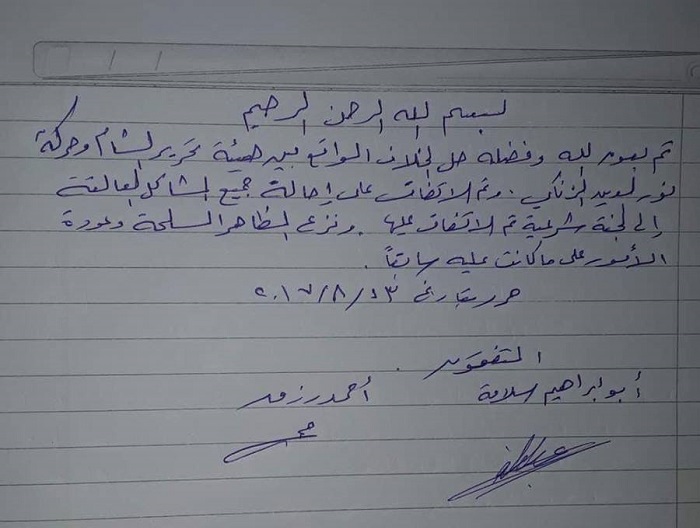 بسم الله الرحمن الرحيم
تم بعون الله وفضله حل الخلاف الواقع بين هيئة تحرير الشام وحركة
نور الدين الزنكي . وتم الاتفاق على إحالة جميع المشاكل العالقة
إلى لجنة شرعية تم الاتفاق عليها . ونزع المظاهر المسلحة وعودة
الأمور على ما كانت عليه سابقاً .
حرر بتاريخ ٢٠١٧/٨/٢٣
المتفقون .
أبو ابراهيم سلامة أحمد رزق